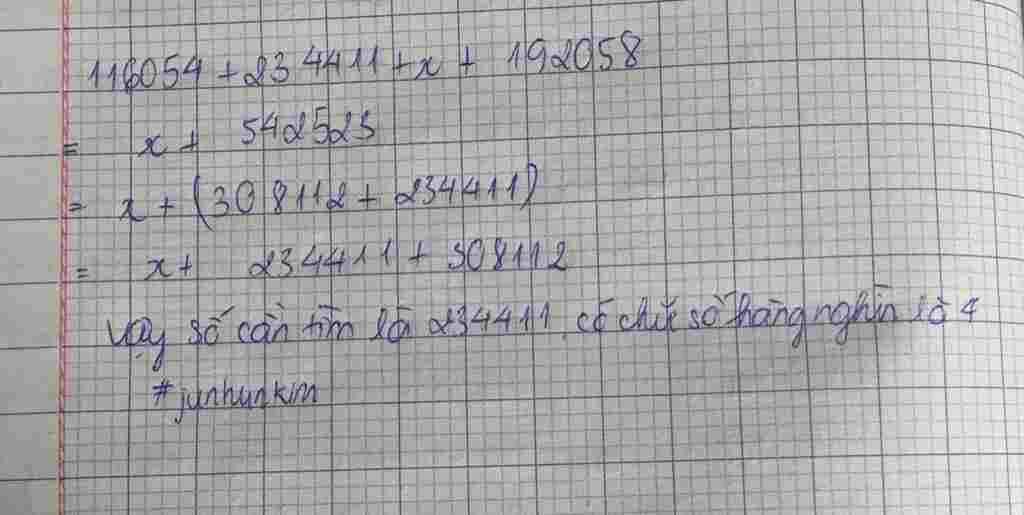 116054 + 234411 + x + 192058
= x + 542523
= x + (308112 + 234411)
= x + 234411 + 308112
Vậy số cần tìm là 234411 có chữ số hàng nghìn là 4
#junhunkim